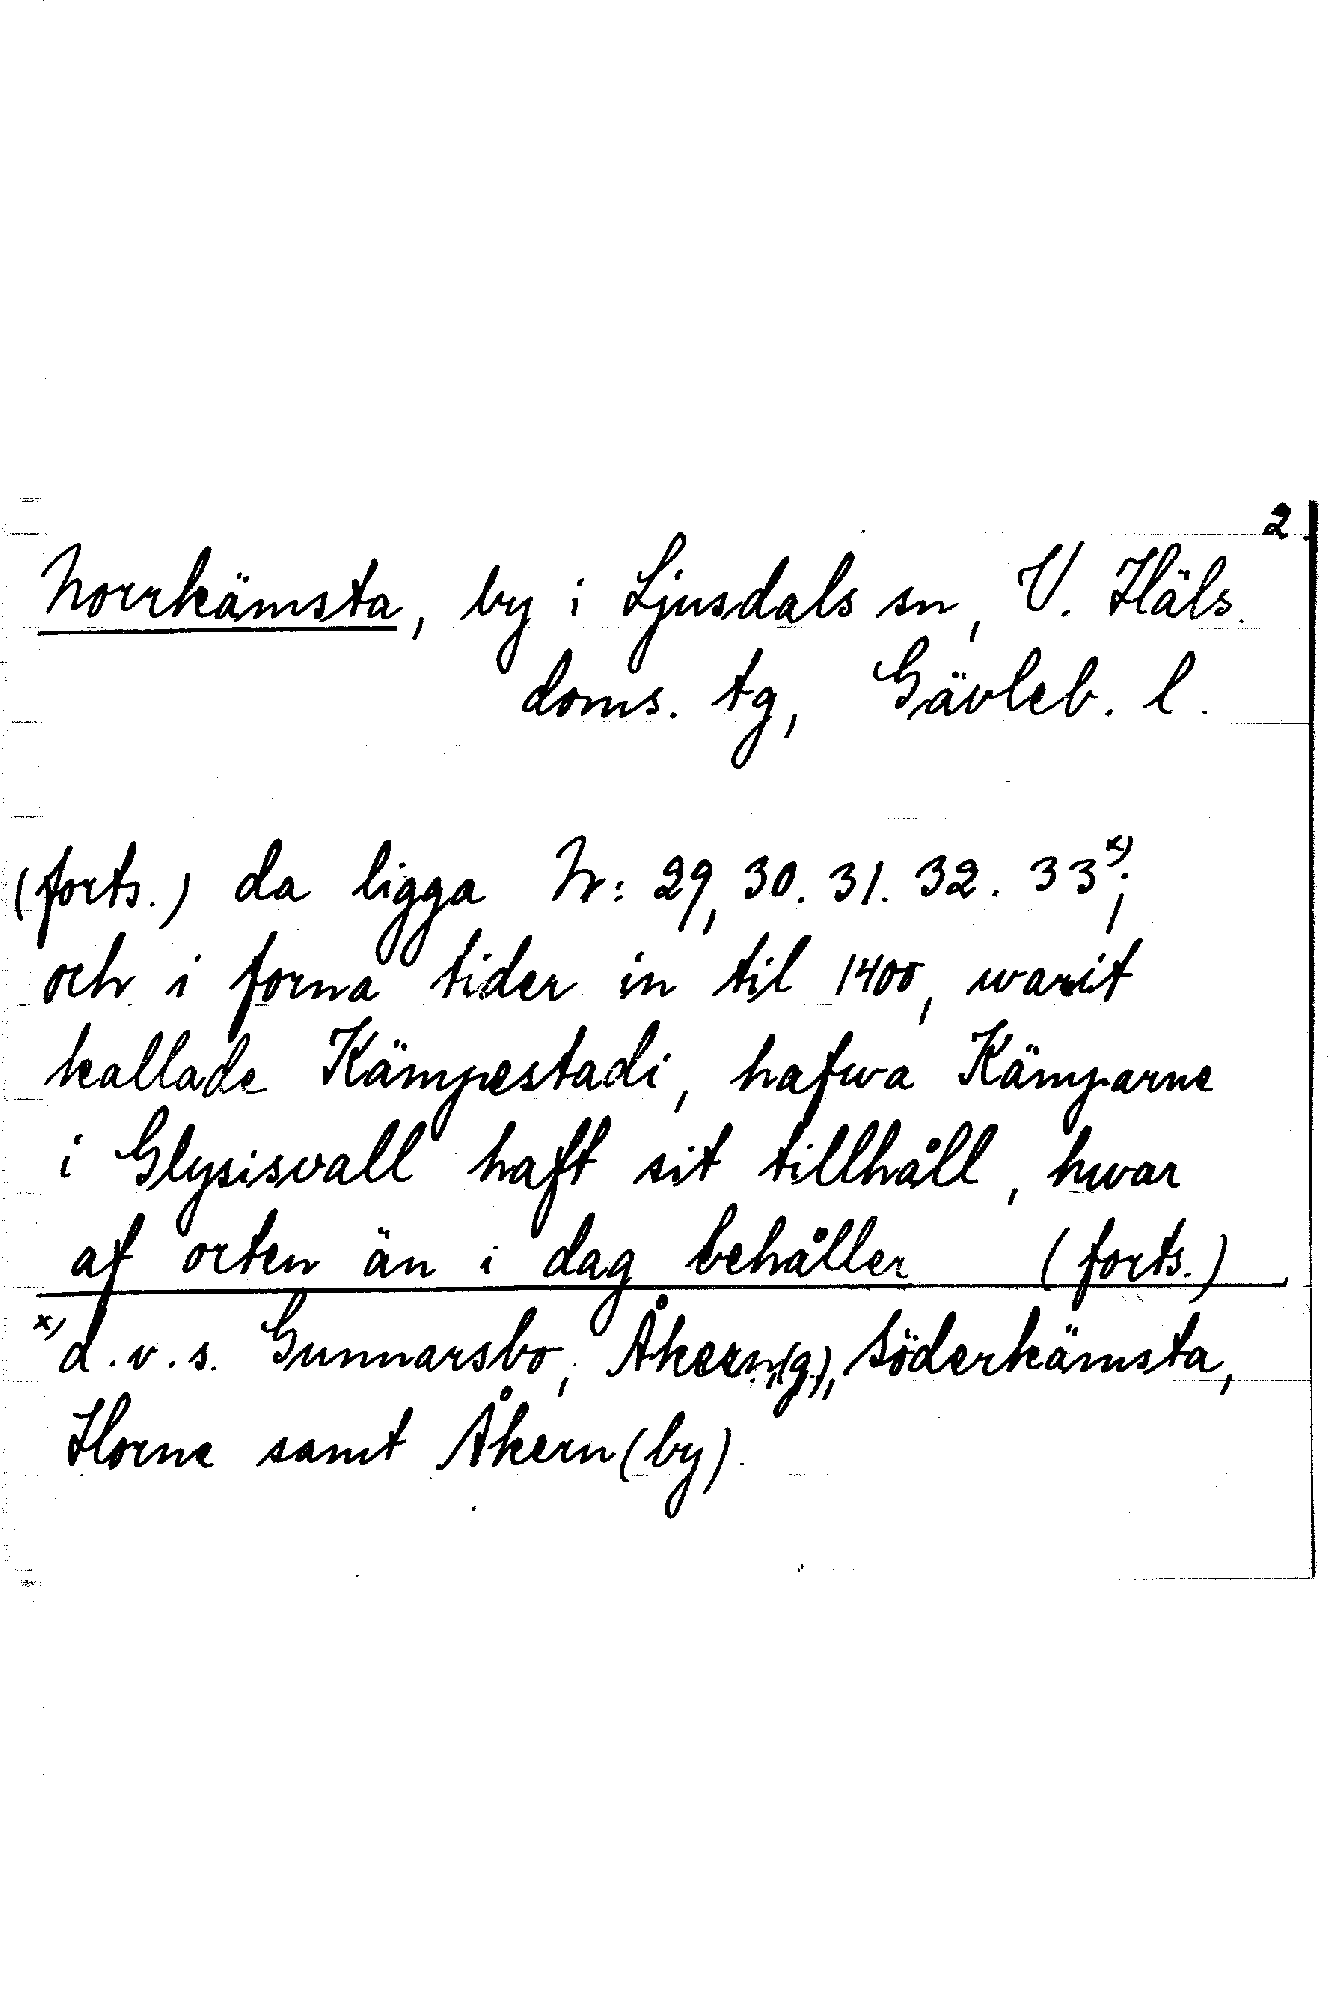 2.
Norrkämsta, by i Ljusdals sn, V. Häls.
doms. tg, Gävleb. l.
(forts.) da ligga Nr: 29, 30. 31. 32. 33x);
och i forna tider in til 1400, warit
kallade Kämpestadi, hafwa Kämparne
i Glysisvall haft sit tillhåll, hwar
af orten än i dag behåller (forts.)
x) d.v.s. Gunnarsbo, Åkern(g), Söderkämsta,
Horne samt Åkern (by).